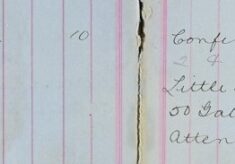 10 Confe
2 4
Little
50 Gal
Atten